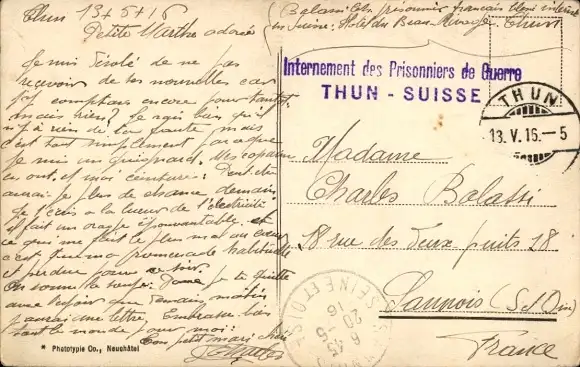 Thun 13+5+16
Petite Marthe adorée
Je suis désolé de ne pas
recevoir de tes nouvelles car
j'y comptais encore pour tantôt.
mais rien? Je sais bien qu'il
n'y a rien de ta faute mais
c'est tout simplement parceque
je suis un guignard. Mes copains
en ont, et moi ceinture. Peut-être
aurai-je plus de chance demain.
Je t'écris à la lueur de l'électricité
il fait un orage épouvantable, et
ce que me fait le plus mal au cœur
c'est que ma promenade habituelle
est perdue pour ce soir.
On sonne la soupe. Donc je te quitte
avec l'espoir que demain matin
j'aurai une lettre. Embrasse bien
tout le monde pour moi.
Ton petit mari chéri
Charles
* Phototypie Co., Neuchâtel
(Balassi Ch. prisonnier français blessé interné
en Suisse. Hôtel du Beau Rivage. Thun)
Internement des Prisonniers de Guerre
THUN - SUISSE
THUN
13.V.16.-5
Madame
Charles Balassi
18 rue des Deux puits 18
Sannois (S et Oise)
France
SEINE ET OISE
6 45
20 - 5
16